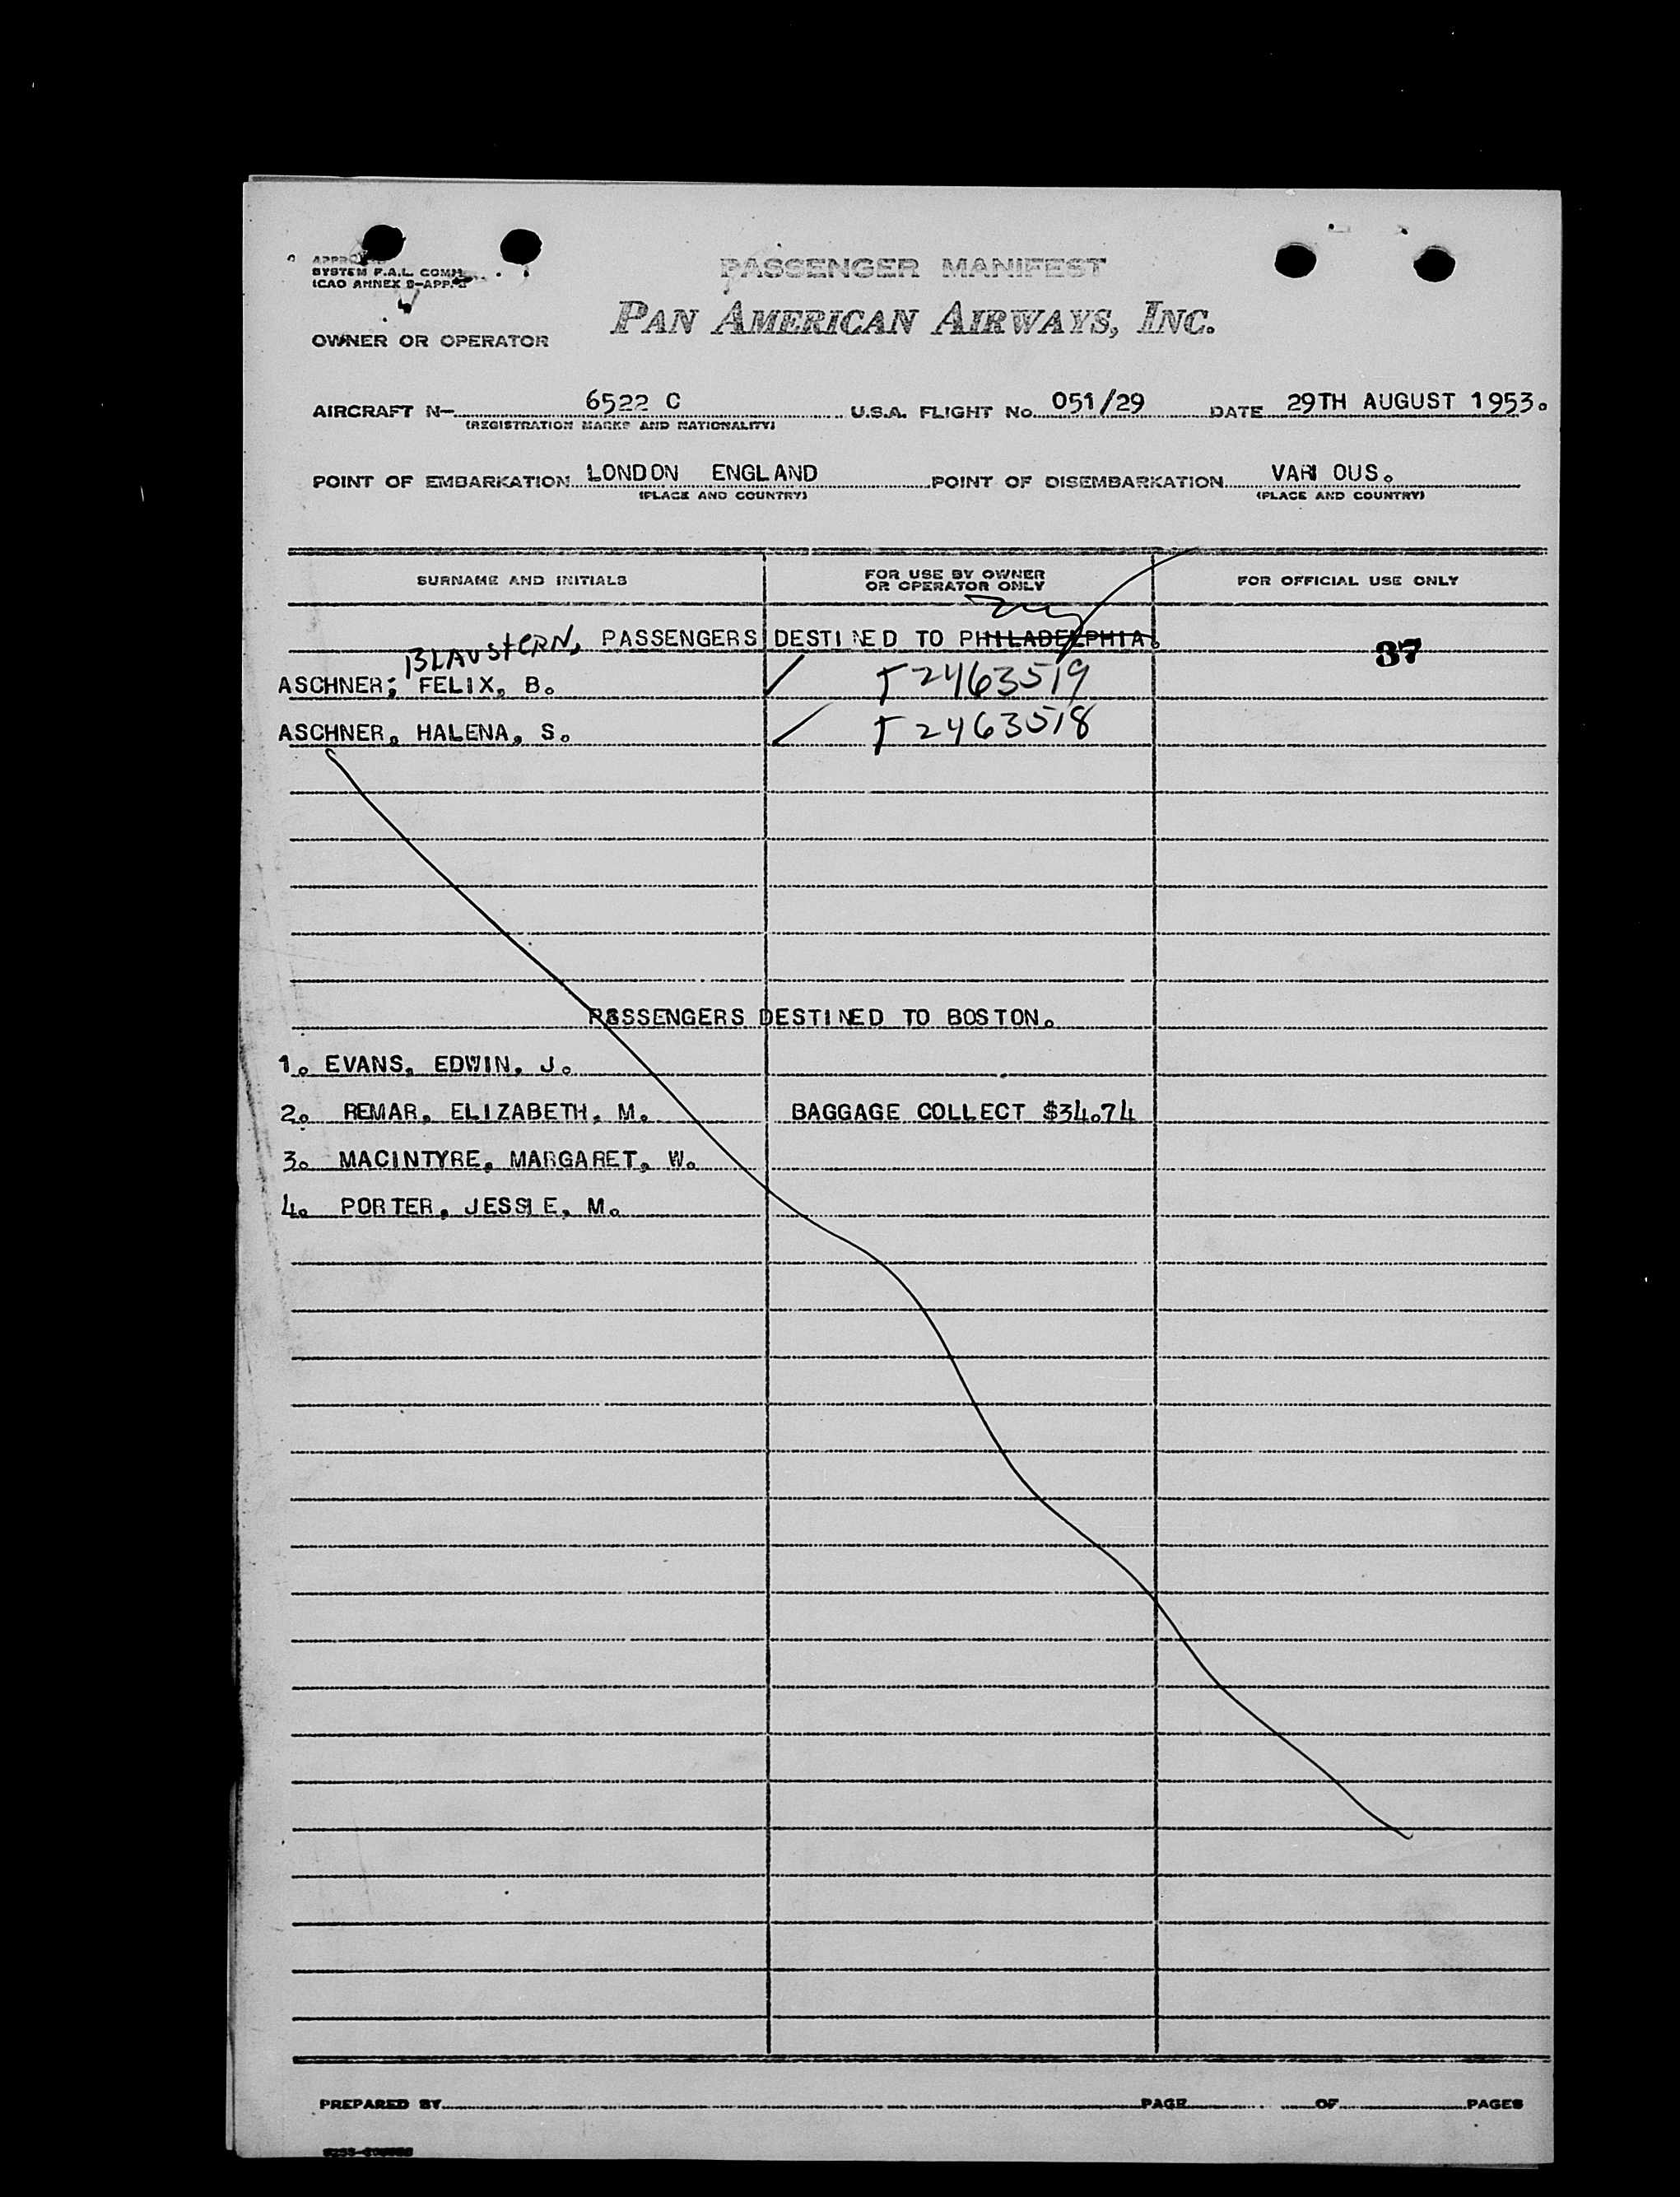 PASSENGER MANIFEST
SYSTEM F.A.L. COMM.
ICAO ANNEX 9-APP.
PAN AMERICAN AIRWAYS, INC.
OWNER OR OPERATOR
AIRCRAFT N- 6522 C U.S.A. FLIGHT No. 051/29 DATE 29TH AUGUST 1953.
(REGISTRATION MARKS AND NATIONALITY)
POINT OF EMBARKATION LONDON ENGLAND POINT OF DISEMBARKATION VARI OUS.
(PLACE AND COUNTRY) (PLACE AND COUNTRY)
SURNAME AND INITIALS FOR USE BY OWNER OR OPERATOR ONLY FOR OFFICIAL USE ONLY
PASSENGERS DESTINED TO PHILADELPHIA. 37
BLAUSTERN,
ASCHNER, FELIX, B. T 2463519
ASCHNER, HALENA, S. T 2463518
PASSENGERS DESTINED TO BOSTON.
1. EVANS, EDWIN, J.
2. REMAR, ELIZABETH, M. BAGGAGE COLLECT $34.74
3. MACINTYRE, MARGARET, W.
4. PORTER, JESSIE, M.
PREPARED BY PAGE OF PAGES